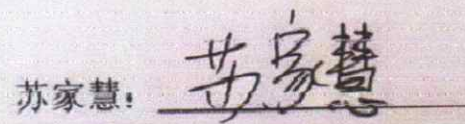 苏家慧：苏家慧